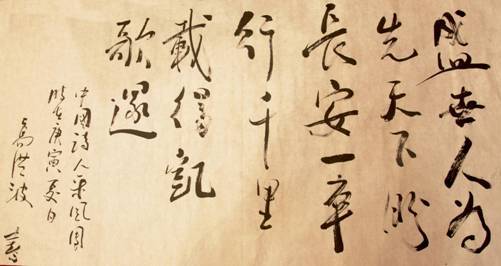 盛世人為
先天下盼
長安一卒
行千里
載得凱
歌還
中國詩人采風團
時在庚寅夏日
高洪波 書